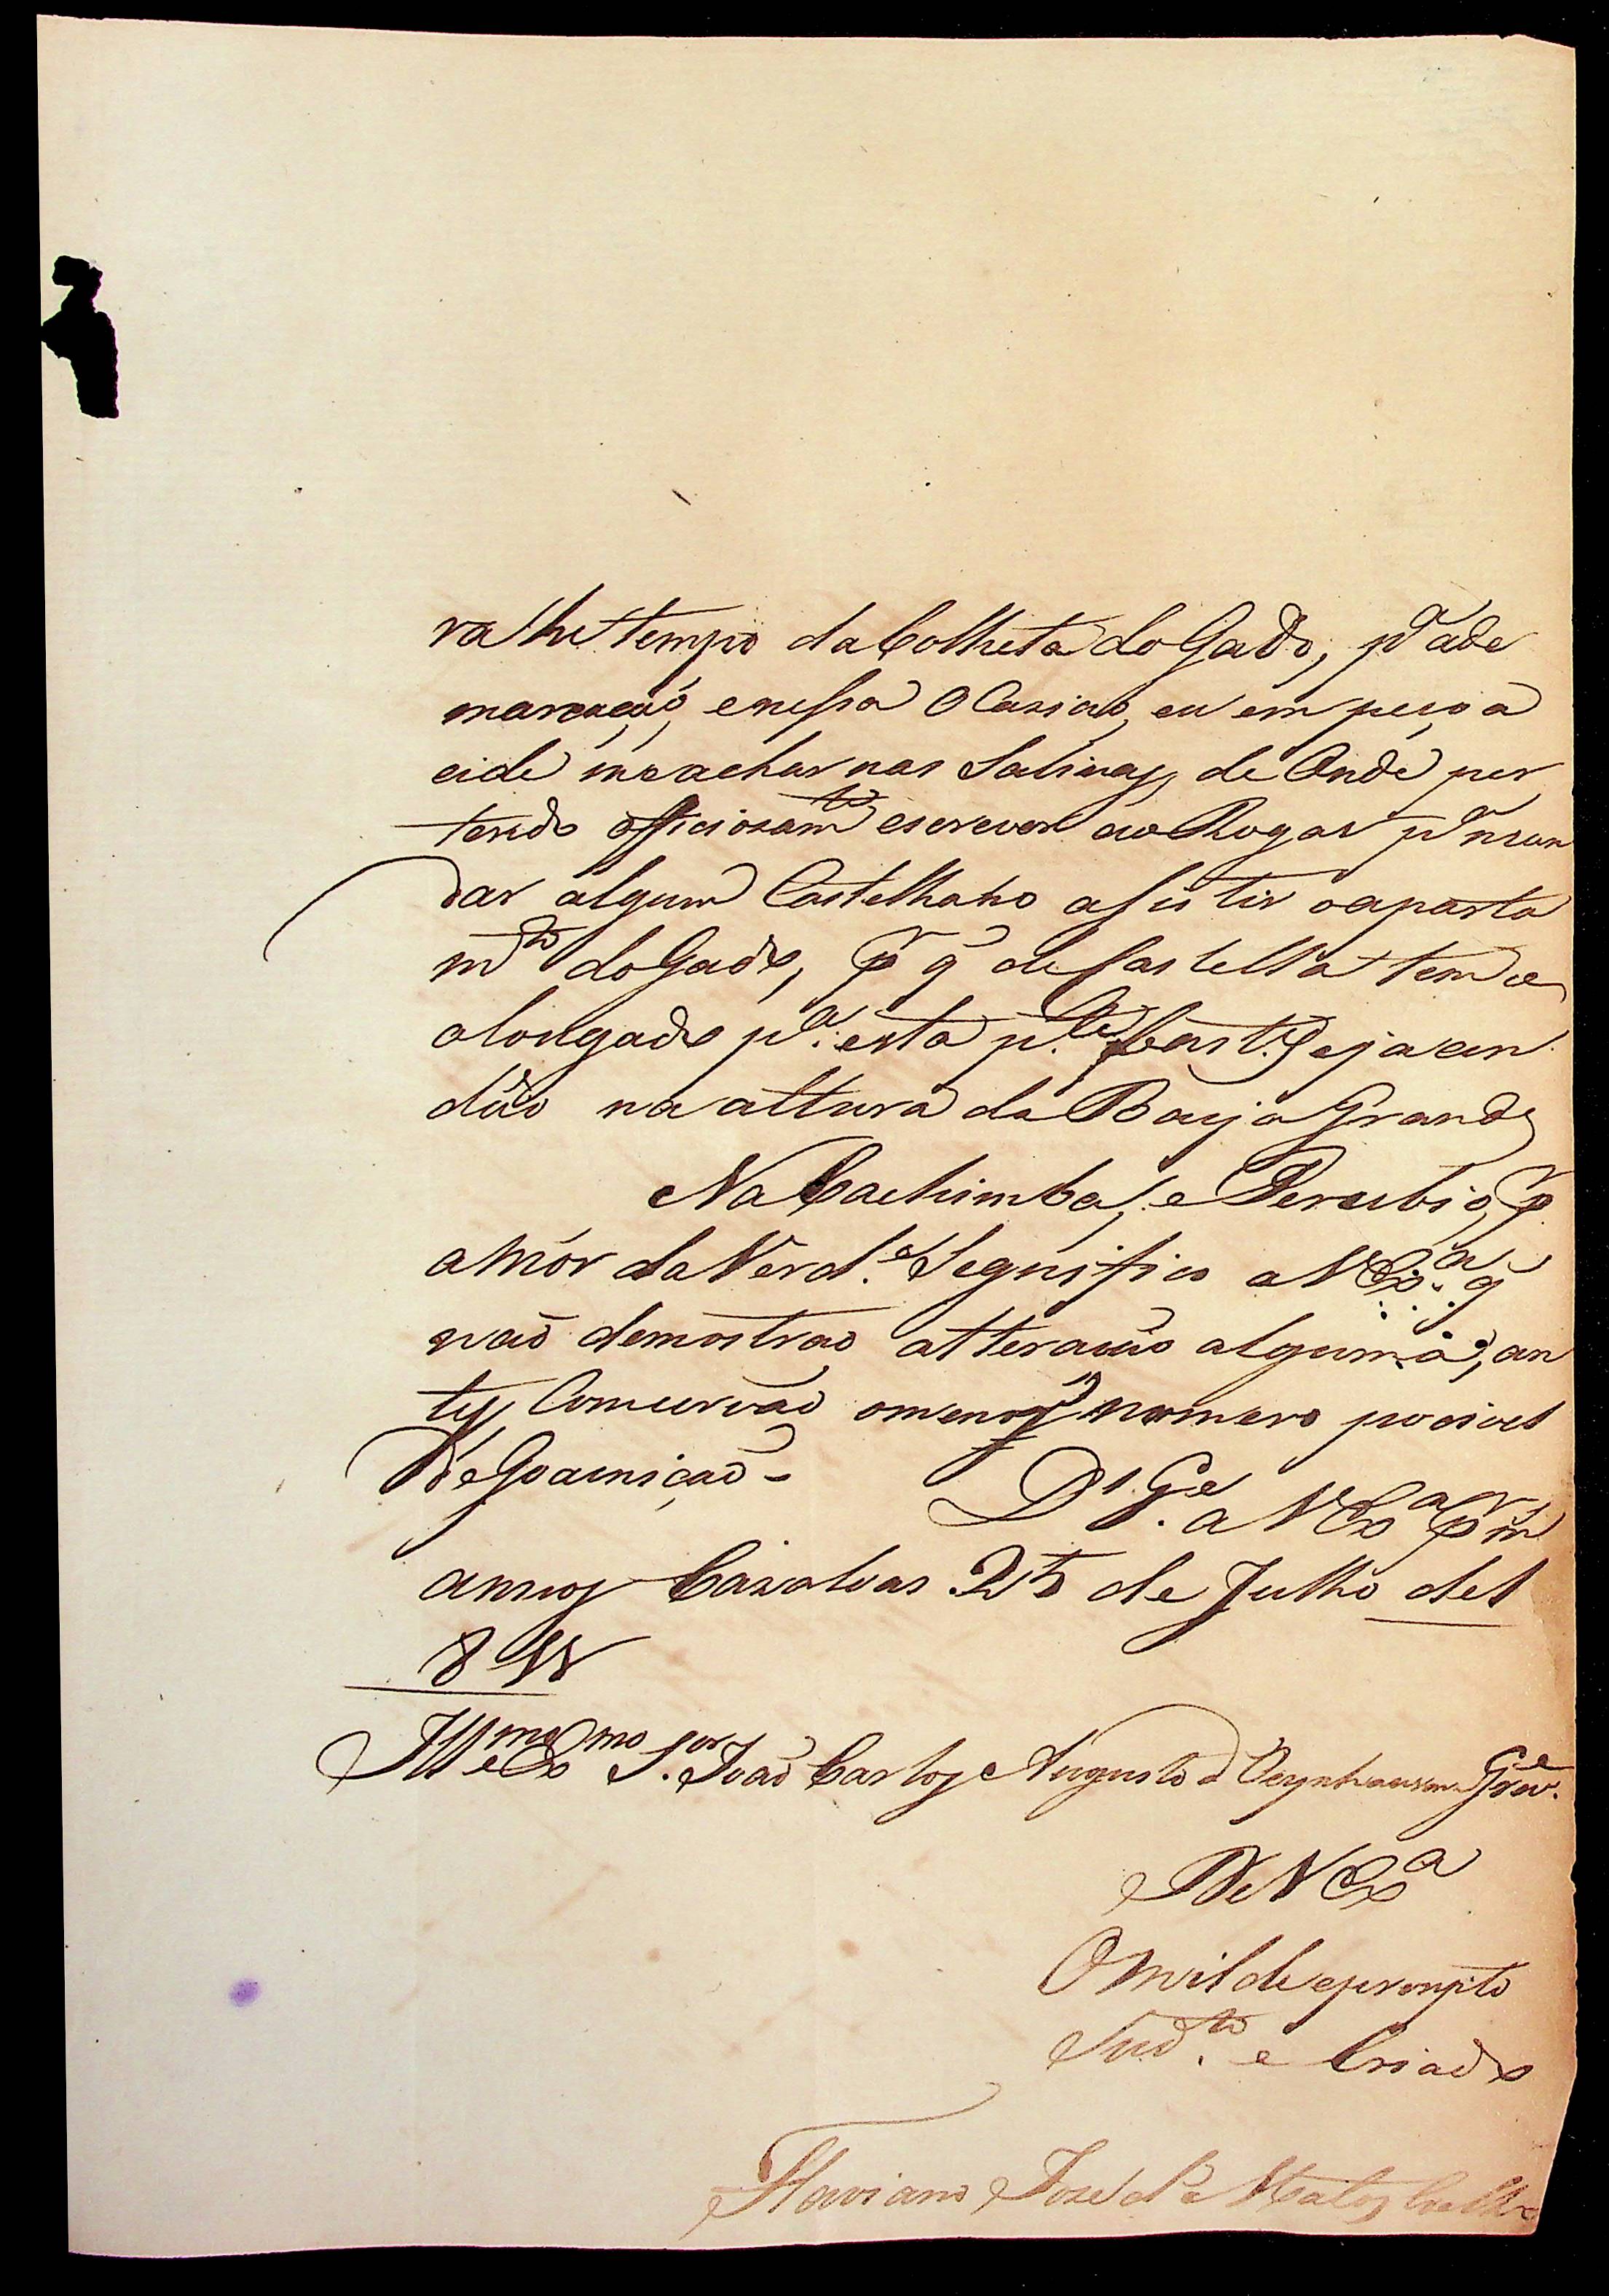 va lhe tempo da Colheta do Gado, p.ª ade
marcação, e nessa Ocasião, eu em pesoa
eide me achar nas Salinas, de Onde per
tendo officiosam.to escrever ao Rogar p.ª man
dar algum Castelhano asistir o aparta
m.to do Gado, pr q̃ de Castella tem se
alongado p.ª esta p.te bast.e e ja an
dão na altura da Baija Grande
Na Cachimba, e Perubio, pr
a mór da Verd.e Segnifico a V Ex.ª q̃
não demostrao alteracão alguma, an
tes Comcervão o menor nomero pocivel
de Goarnição -
D.s G.e a V Ex.ª pr m
annos Cazalvas 25 de Julho de 1
811
Ill.mo e Ex.mo S.or João Carlos Augusto d Oeynhausen Grav.e
De V Ex.ª
O mil de e prompto
Sud.to e Criado
Flaviano Jose de Matos Coelho